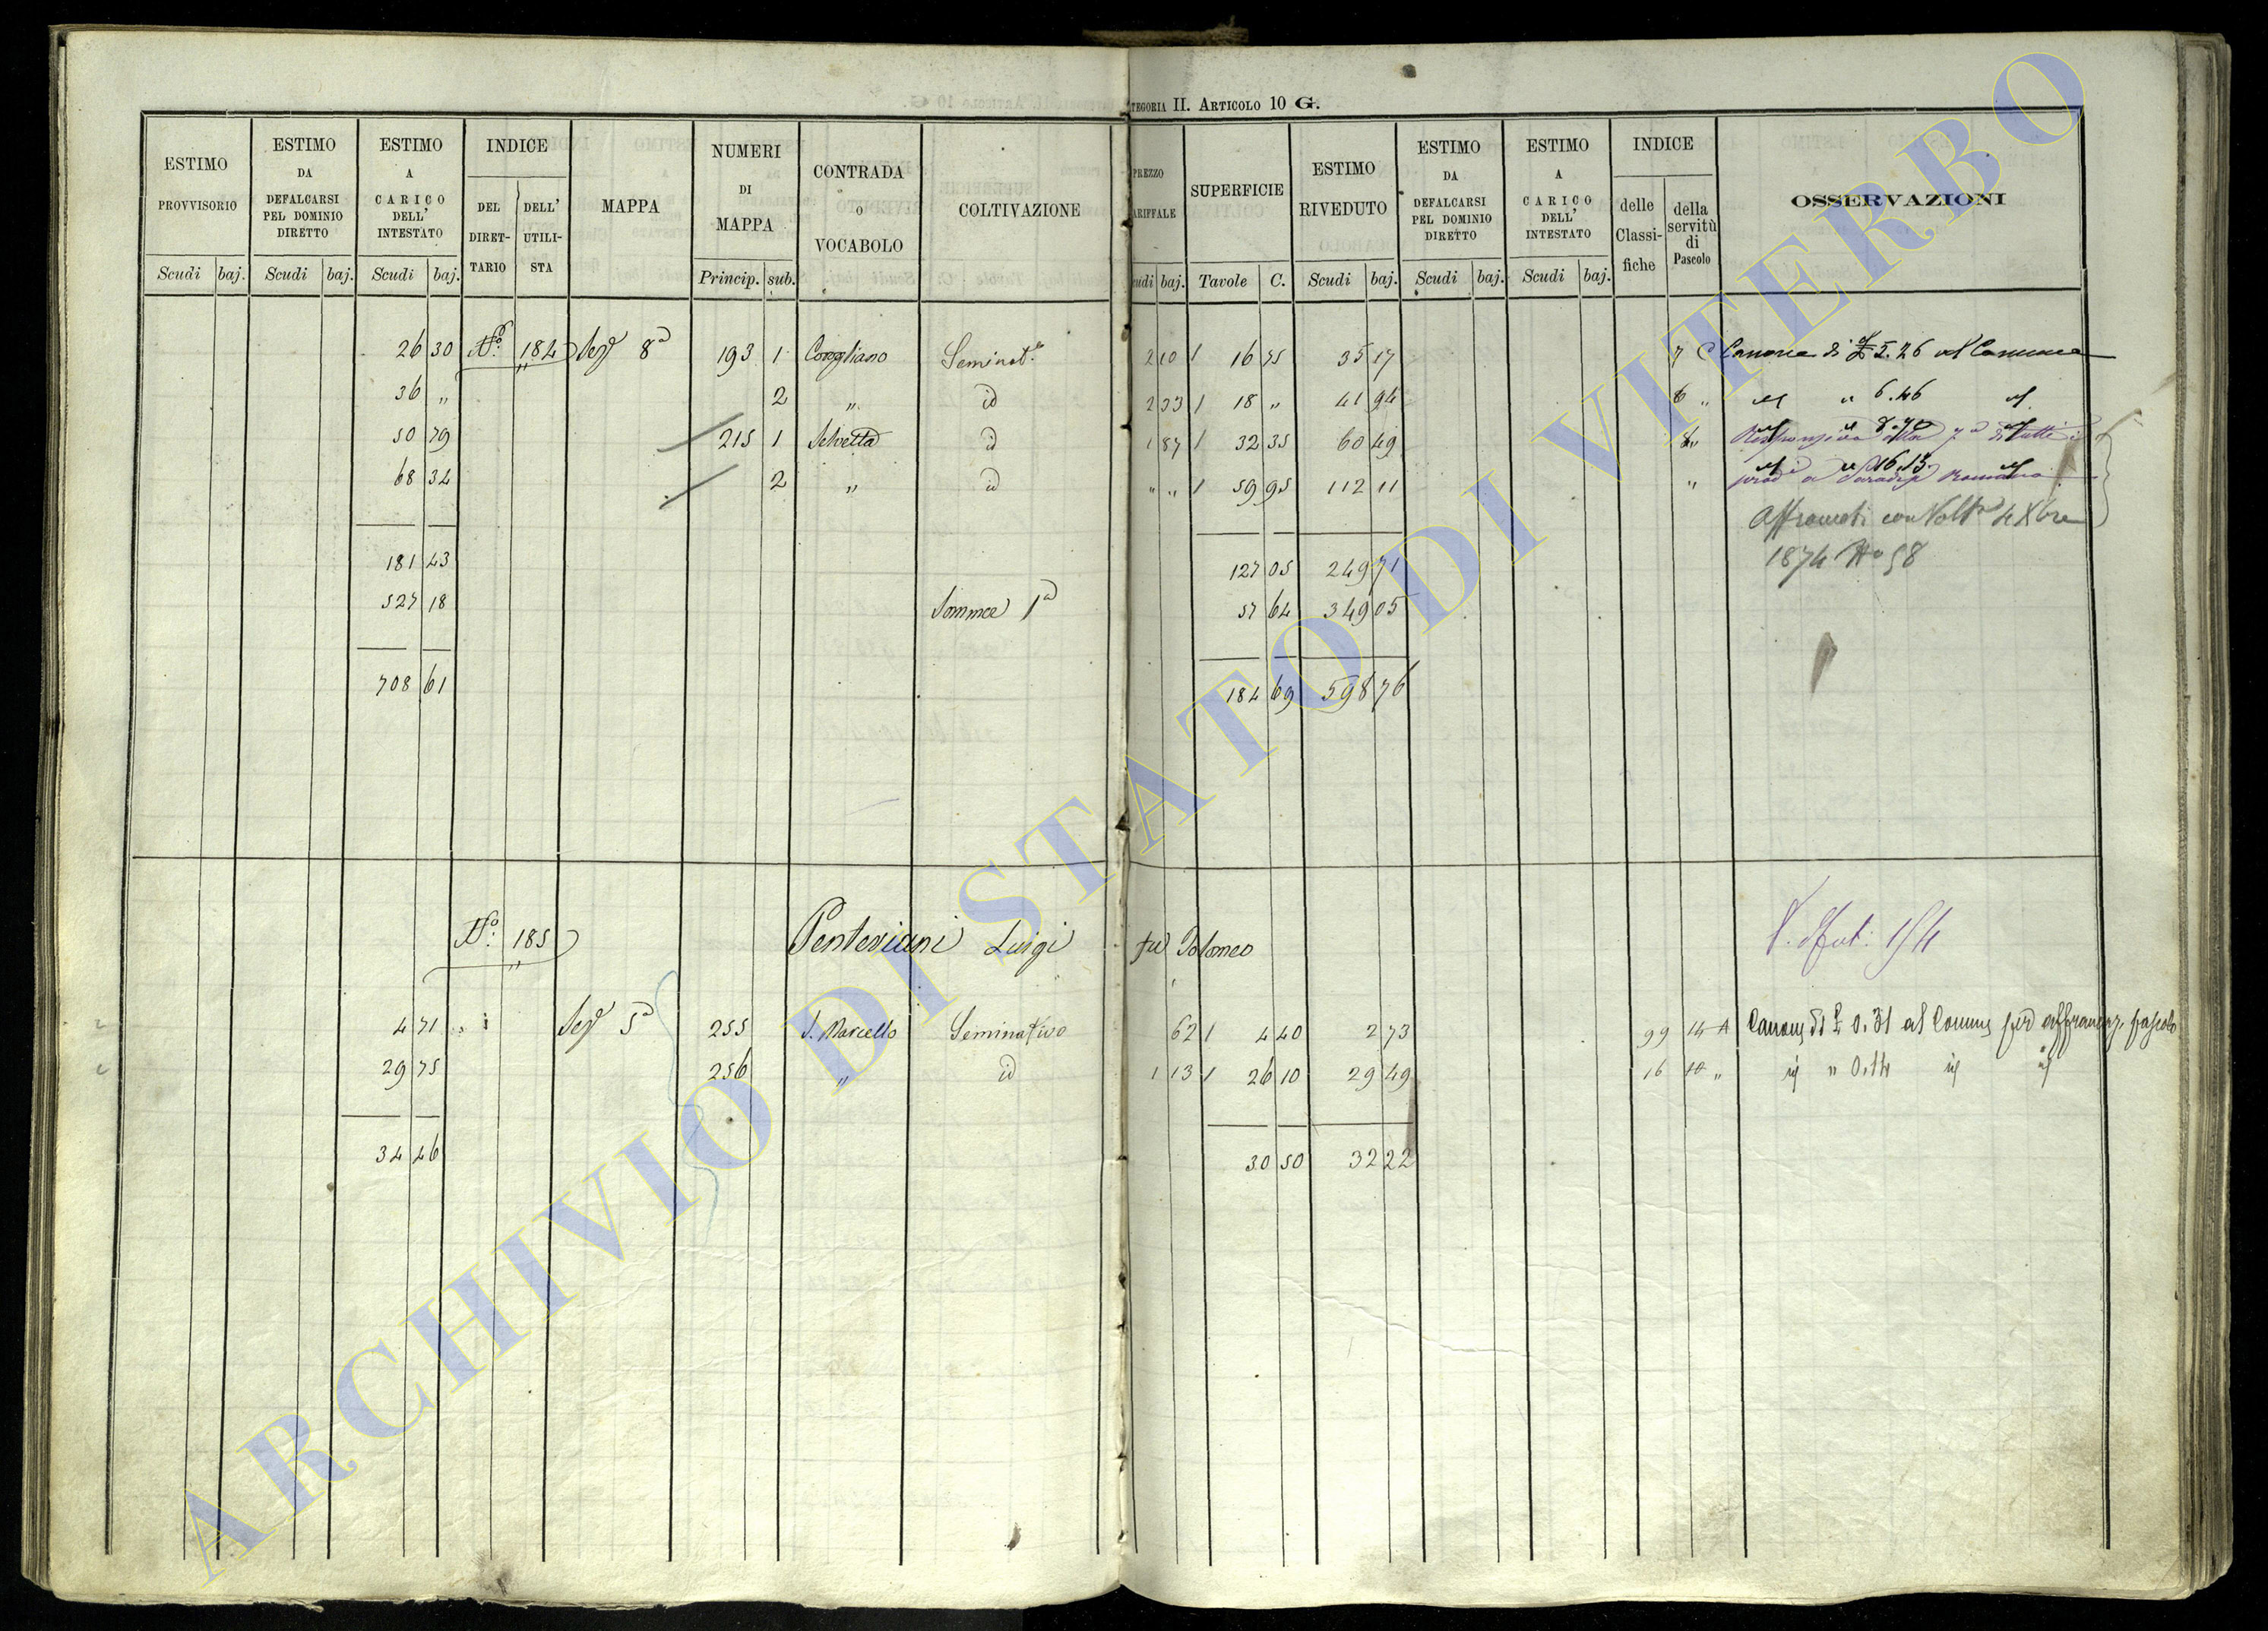 CATEGORIA II. ARTICOLO 10 G.
ESTIMO PROVVISORIO Scudi baj.
ESTIMO DA DEFALCARSI PEL DOMINIO DIRETTO Scudi baj.
ESTIMO A CARICO DELL' INTESTATO Scudi baj.
INDICE DEL DIRET-TARIO DELL' UTILI-STA
MAPPA
NUMERI DI MAPPA Princip. sub.
CONTRADA O VOCABOLO
COLTIVAZIONE
PREZZO TARIFFALE Scudi baj.
SUPERFICIE Tavole C.
ESTIMO RIVEDUTO Scudi baj.
ESTIMO DA DEFALCARSI PEL DOMINIO DIRETTO Scudi baj.
ESTIMO A CARICO DELL' INTESTATO Scudi baj.
INDICE delle Classi-fiche della servitù di Pascolo
OSSERVAZIONI
26 30 No. 184 Sez. 8a 193 1 Corgliano Seminat.o 2 10 1 16 75 35 17 7 C Canone di £ 5.26 al Comune
36 " 2 " id 2 33 1 18 " 41 94 6 " id " 6.46 id
50 79 215 1 Selvetta id 1 87 1 32 35 60 49 8 "
68 34 2 " id " " 1 59 95 112 11 "
Affrancati con Volt.a 4 Xbre
1874 No 58
181 43 127 05 249 71
527 18 Somma 1a 57 64 349 05
708 61 184 69 598 76
No. 185 Penteriani Luigi fu Tolomeo
4 71 Sez. 5a 255 S. Marcello Seminativo 62 1 4 40 2 73 99 14 A Canone di £ 0.31 al Comune per affrancaz. pascolo
29 75 256 " id 1 13 1 26 10 29 49 16 10 " id " 0.14 id id
34 46 30 50 32 22
ARCHIVIO DI STATO DI VITERBO